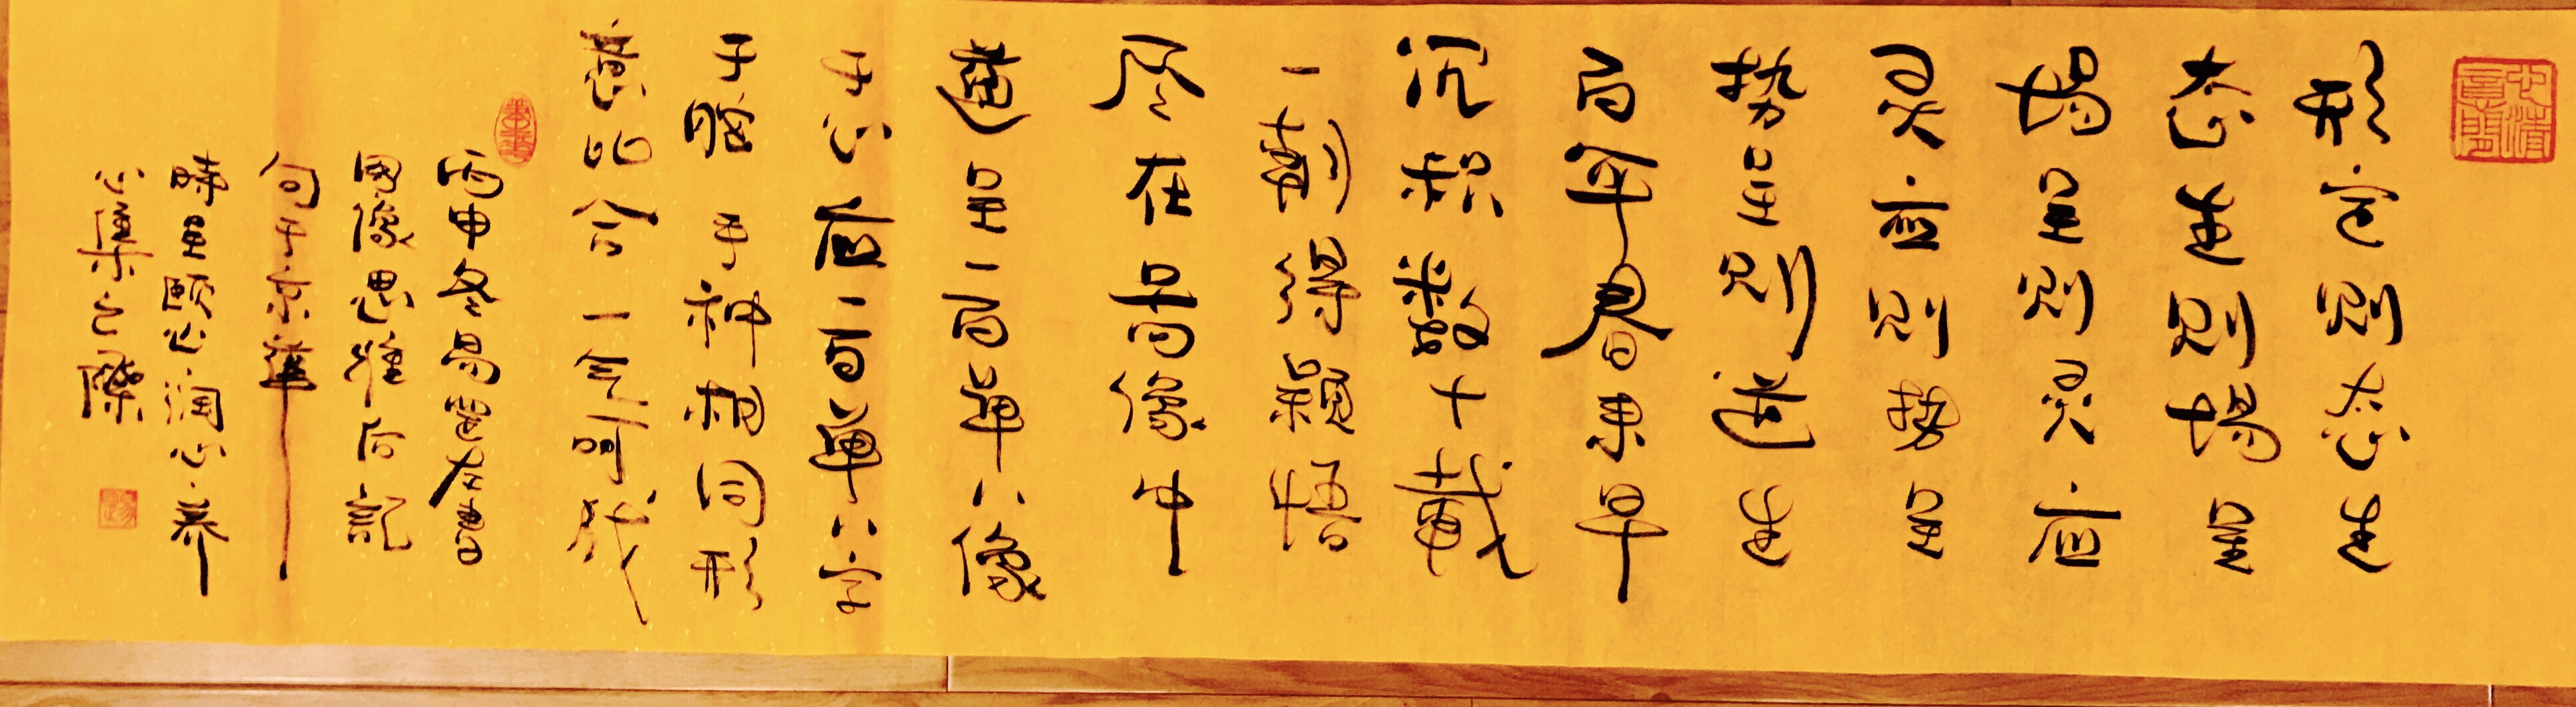 形定则态生
态生则场呈
场呈则灵应
灵应则势呈
势呈则道生
百年春来早
沉积数十载
一朝得颖悟
尽在尚像中
道呈一百单八像
手心应一百单八字
于胸手神相同形
意吻合一气呵成
丙申冬易
图像思维后记
句于京华
时里颐心润心养
心集之